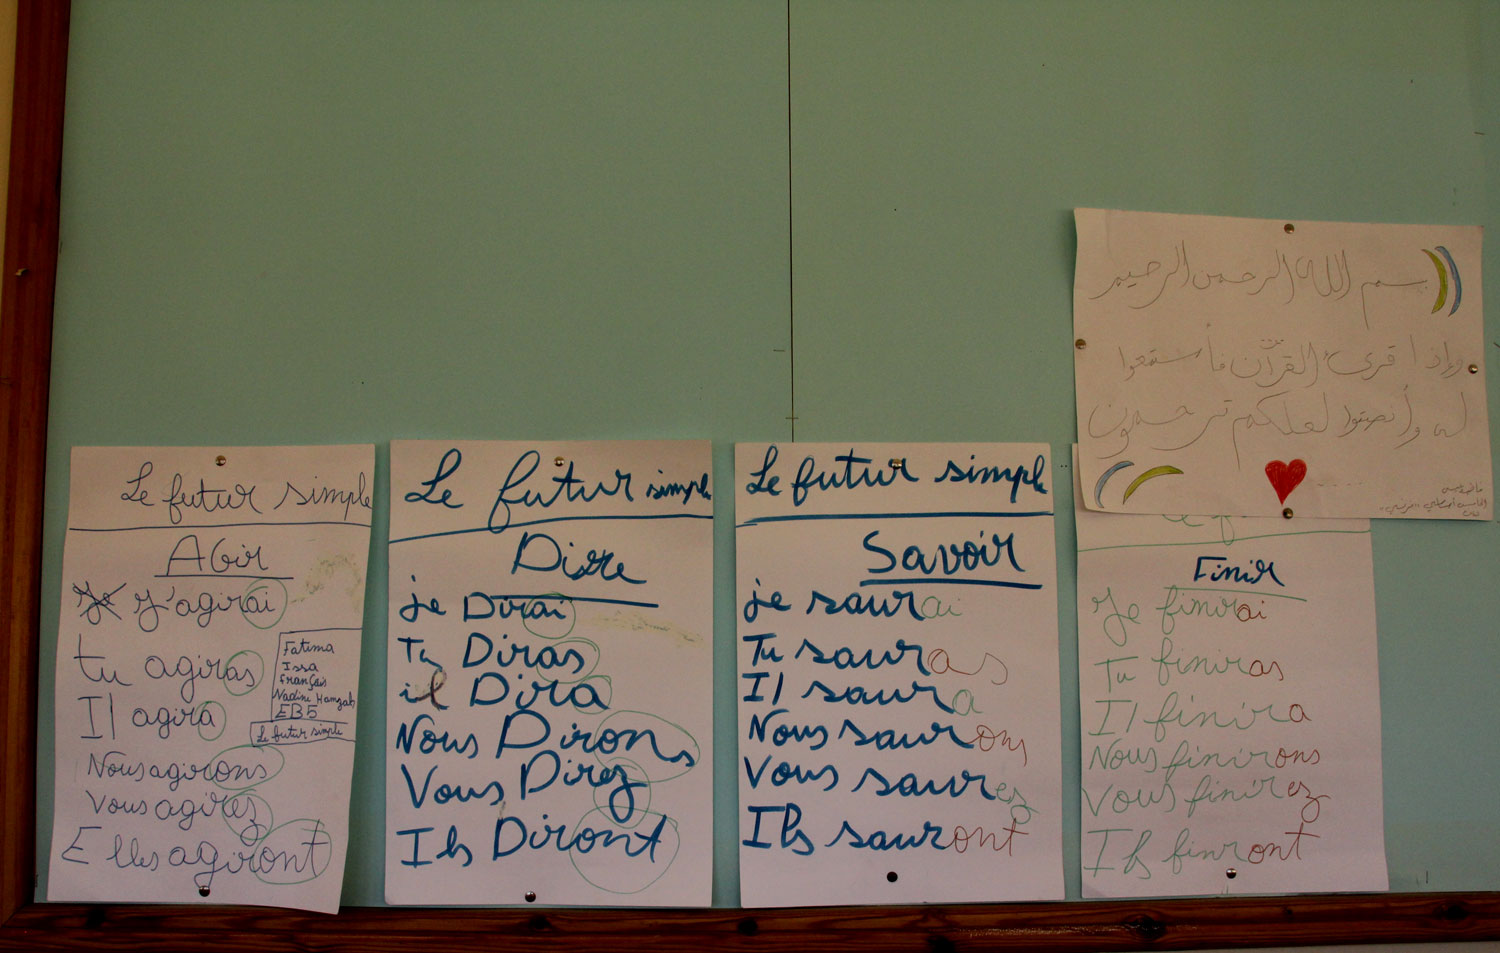 Le futur simple
Agir
Je J'agirai
tu agiras
Il agira
Nous agirons
Vous agirez
Elles agiront
Fatima
Issa
Français
Nadine Hamzah
EB5
Le futur simple
Le futur simple
Dire
je Dirai
Tu Diras
il Dira
Nous Dirons
Vous Direz
Ils Diront
Le futur simple
Savoir
je saurai
Tu sauras
Il saura
Nous saurons
Vous saurez
Ils sauront
بسم الله الرحمن الرحيم
وإذا قرىء القرآن فأستمعوا
له وأنصتوا لعلكم ترحمون
Finir
Je finirai
Tu finiras
Il finira
Nous finirons
Vous finirez
Ils finront